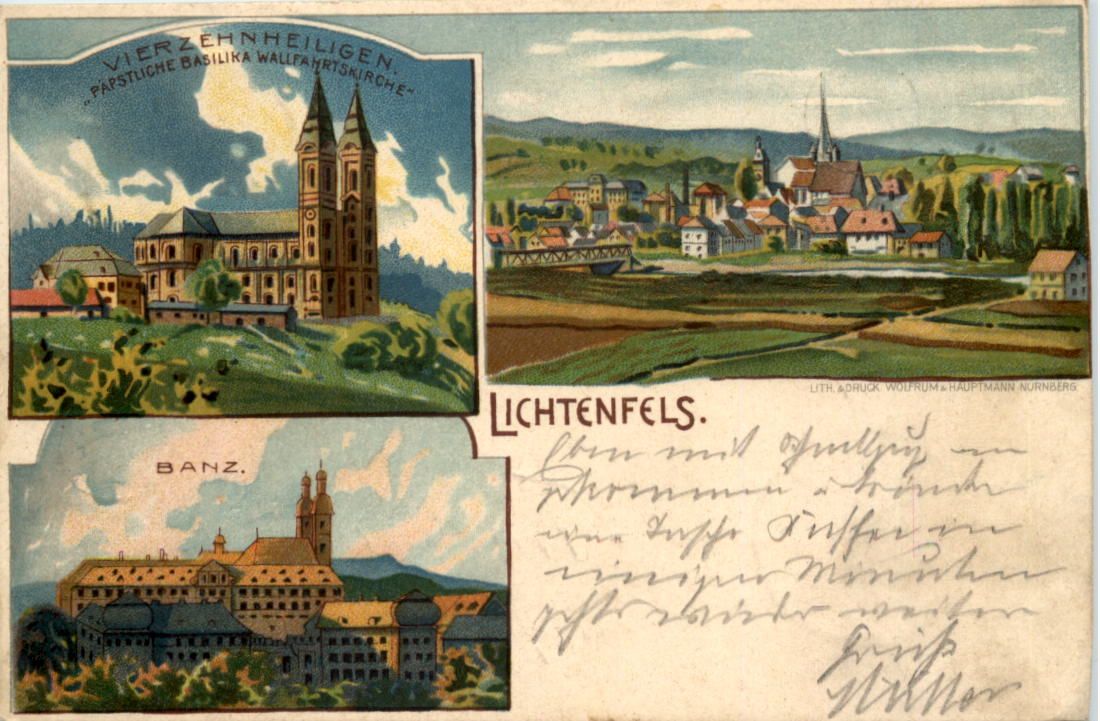 VIERZEHNHEILIGEN.
„PÄPSTLICHE BASILIKA WALLFAHRTSKIRCHE“
LITH. & DRUCK WOLFRUM & HAUPTMANN NÜRNBERG
LICHTENFELS.
BANZ.
Eben mit Schnellzug an
gekommen u. trinke
eine Tasse Kaffee in
einigen Minuten
gehts wieder weiter
Gruß